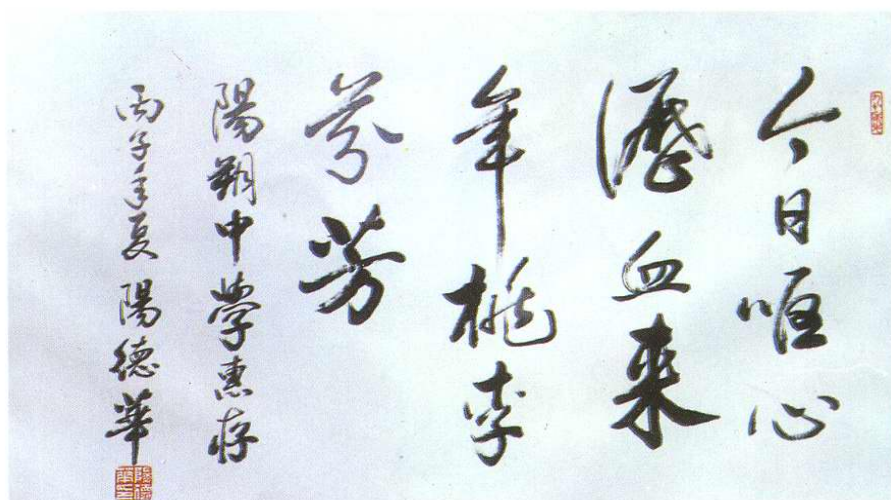 今日呕心
瀝血来
年桃李
芬芳
陽朔中學惠存
丙子年夏 陽德華